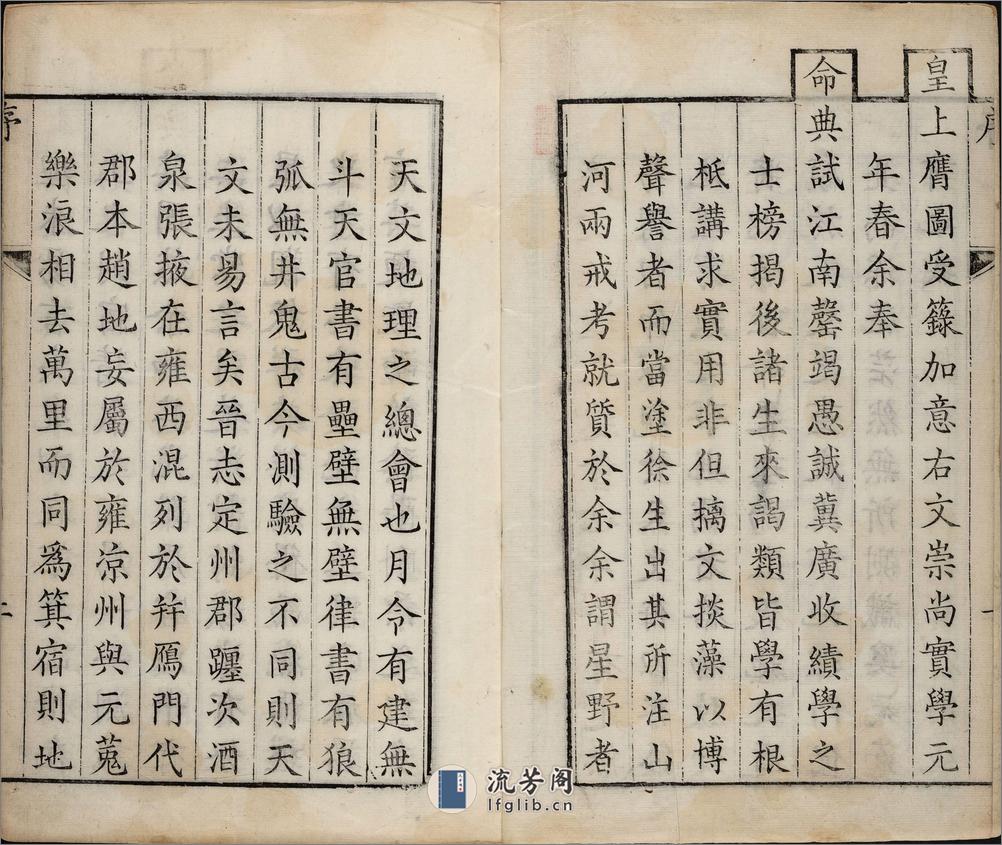 皇上膺圖受籙加意右文崇尚實學元
年春余奉
命典試江南罄竭愚誠冀廣收績學之
士榜揭後諸生來謁類皆學有根
柢講求實用非但摛文掞藻以博
聲譽者而當塗徐生出其所注山
河兩戒考就質於余余謂星野者
天文地理之總會也月令有建無
斗天官書有壘壁無壁律書有狼
弧無井鬼古今測驗之不同則天
文未易言矣晉志定州郡躔次酒
泉張掖在雍西混列於幷鴈門代
郡本趙地妄屬於雍涼州與元菟
樂浪相去萬里而同爲箕宿則地
序
二
一
流芳阁
lfglib.cn